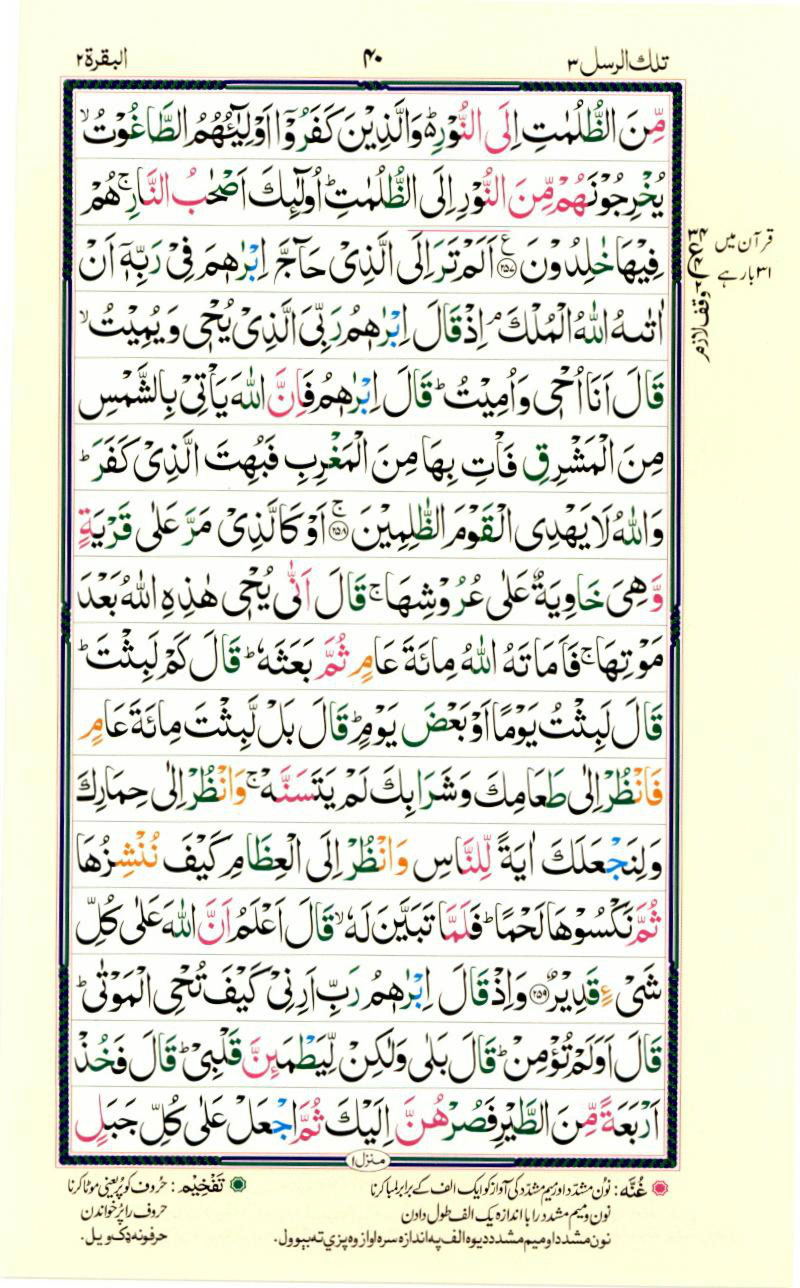 تلك الرسل ۳
۴۰
البقرة ۲
مِّنَ الظُّلُمٰتِ اِلَى النُّوْرِ۬ؕ وَالَّذِيْنَ كَفَرُوْۤا اَوْلِيٰٓـُٔهُمُ الطَّاغُوْتُۙ
يُخْرِجُوْنَهُمْ مِّنَ النُّوْرِ اِلَى الظُّلُمٰتِؕ اُولٰٓئِكَ اَصْحٰبُ النَّارِۚ هُمْ
فِيْهَا خٰلِدُوْنَ ۝۲۵۷ اَلَمْ تَرَ اِلَى الَّذِيْ حَآجَّ اِبْرٰهٖمَ فِيْ رَبِّهٖۤ اَنْ
اٰتٰىهُ اللّٰهُ الْمُلْكَۘ اِذْ قَالَ اِبْرٰهٖمُ رَبِّيَ الَّذِيْ يُحْيٖ وَيُمِيْتُۙ
قَالَ اَنَا اُحْيٖ وَاُمِيْتُؕ قَالَ اِبْرٰهٖمُ فَاِنَّ اللّٰهَ يَاْتِيْ بِالشَّمْسِ
مِنَ الْمَشْرِقِ فَاْتِ بِهَا مِنَ الْمَغْرِبِ فَبُهِتَ الَّذِيْ كَفَرَؕ
وَاللّٰهُ لَا يَهْدِي الْقَوْمَ الظّٰلِمِيْنَۚ ۝۲۵۸ اَوْ كَالَّذِيْ مَرَّ عَلٰى قَرْيَةٍ
وَّهِيَ خَاوِيَةٌ عَلٰى عُرُوْشِهَاۚ قَالَ اَنّٰى يُحْيٖ هٰذِهِ اللّٰهُ بَعْدَ
مَوْتِهَاۚ فَاَمَاتَهُ اللّٰهُ مِائَةَ عَامٍ ثُمَّ بَعَثَهٗؕ قَالَ كَمْ لَبِثْتَؕ
قَالَ لَبِثْتُ يَوْمًا اَوْ بَعْضَ يَوْمٍؕ قَالَ بَلْ لَّبِثْتَ مِائَةَ عَامٍ
فَانْظُرْ اِلٰى طَعَامِكَ وَشَرَابِكَ لَمْ يَتَسَنَّهْۚ وَانْظُرْ اِلٰى حِمَارِكَ
وَلِنَجْعَلَكَ اٰيَةً لِّلنَّاسِ وَانْظُرْ اِلَى الْعِظَامِ كَيْفَ نُنْشِزُهَا
ثُمَّ نَكْسُوْهَا لَحْمًاؕ فَلَمَّا تَبَيَّنَ لَهٗۙ قَالَ اَعْلَمُ اَنَّ اللّٰهَ عَلٰى كُلِّ
شَيْءٍ قَدِيْرٌ ۝۲۵۹ وَاِذْ قَالَ اِبْرٰهٖمُ رَبِّ اَرِنِيْ كَيْفَ تُحْيِ الْمَوْتٰىؕ
قَالَ اَوَلَمْ تُؤْمِنْؕ قَالَ بَلٰى وَلٰكِنْ لِّيَطْمَىِٕنَّ قَلْبِيْؕ قَالَ فَخُذْ
اَرْبَعَةً مِّنَ الطَّيْرِ فَصُرْهُنَّ اِلَيْكَ ثُمَّ اجْعَلْ عَلٰى كُلِّ جَبَلٍ
قرآن میں
۳۱ بار ہے
وقف لازم
منزل۱
غُنَّه: نون مشدد اور میم مشدد کی آواز کو ایک الف کے برابر لمبا کرنا
نون و میم مشدد را با اندازه یک الف طول دادن
نون مشدد او میم مشدد د یوه الف په اندازه سره اواز وه پزې ته بېوول.
تَفْخِيْم: حروف کو پُر یعنی موٹا کرنا
حروف را پُر خواندن
حرفونه ډک ویل.